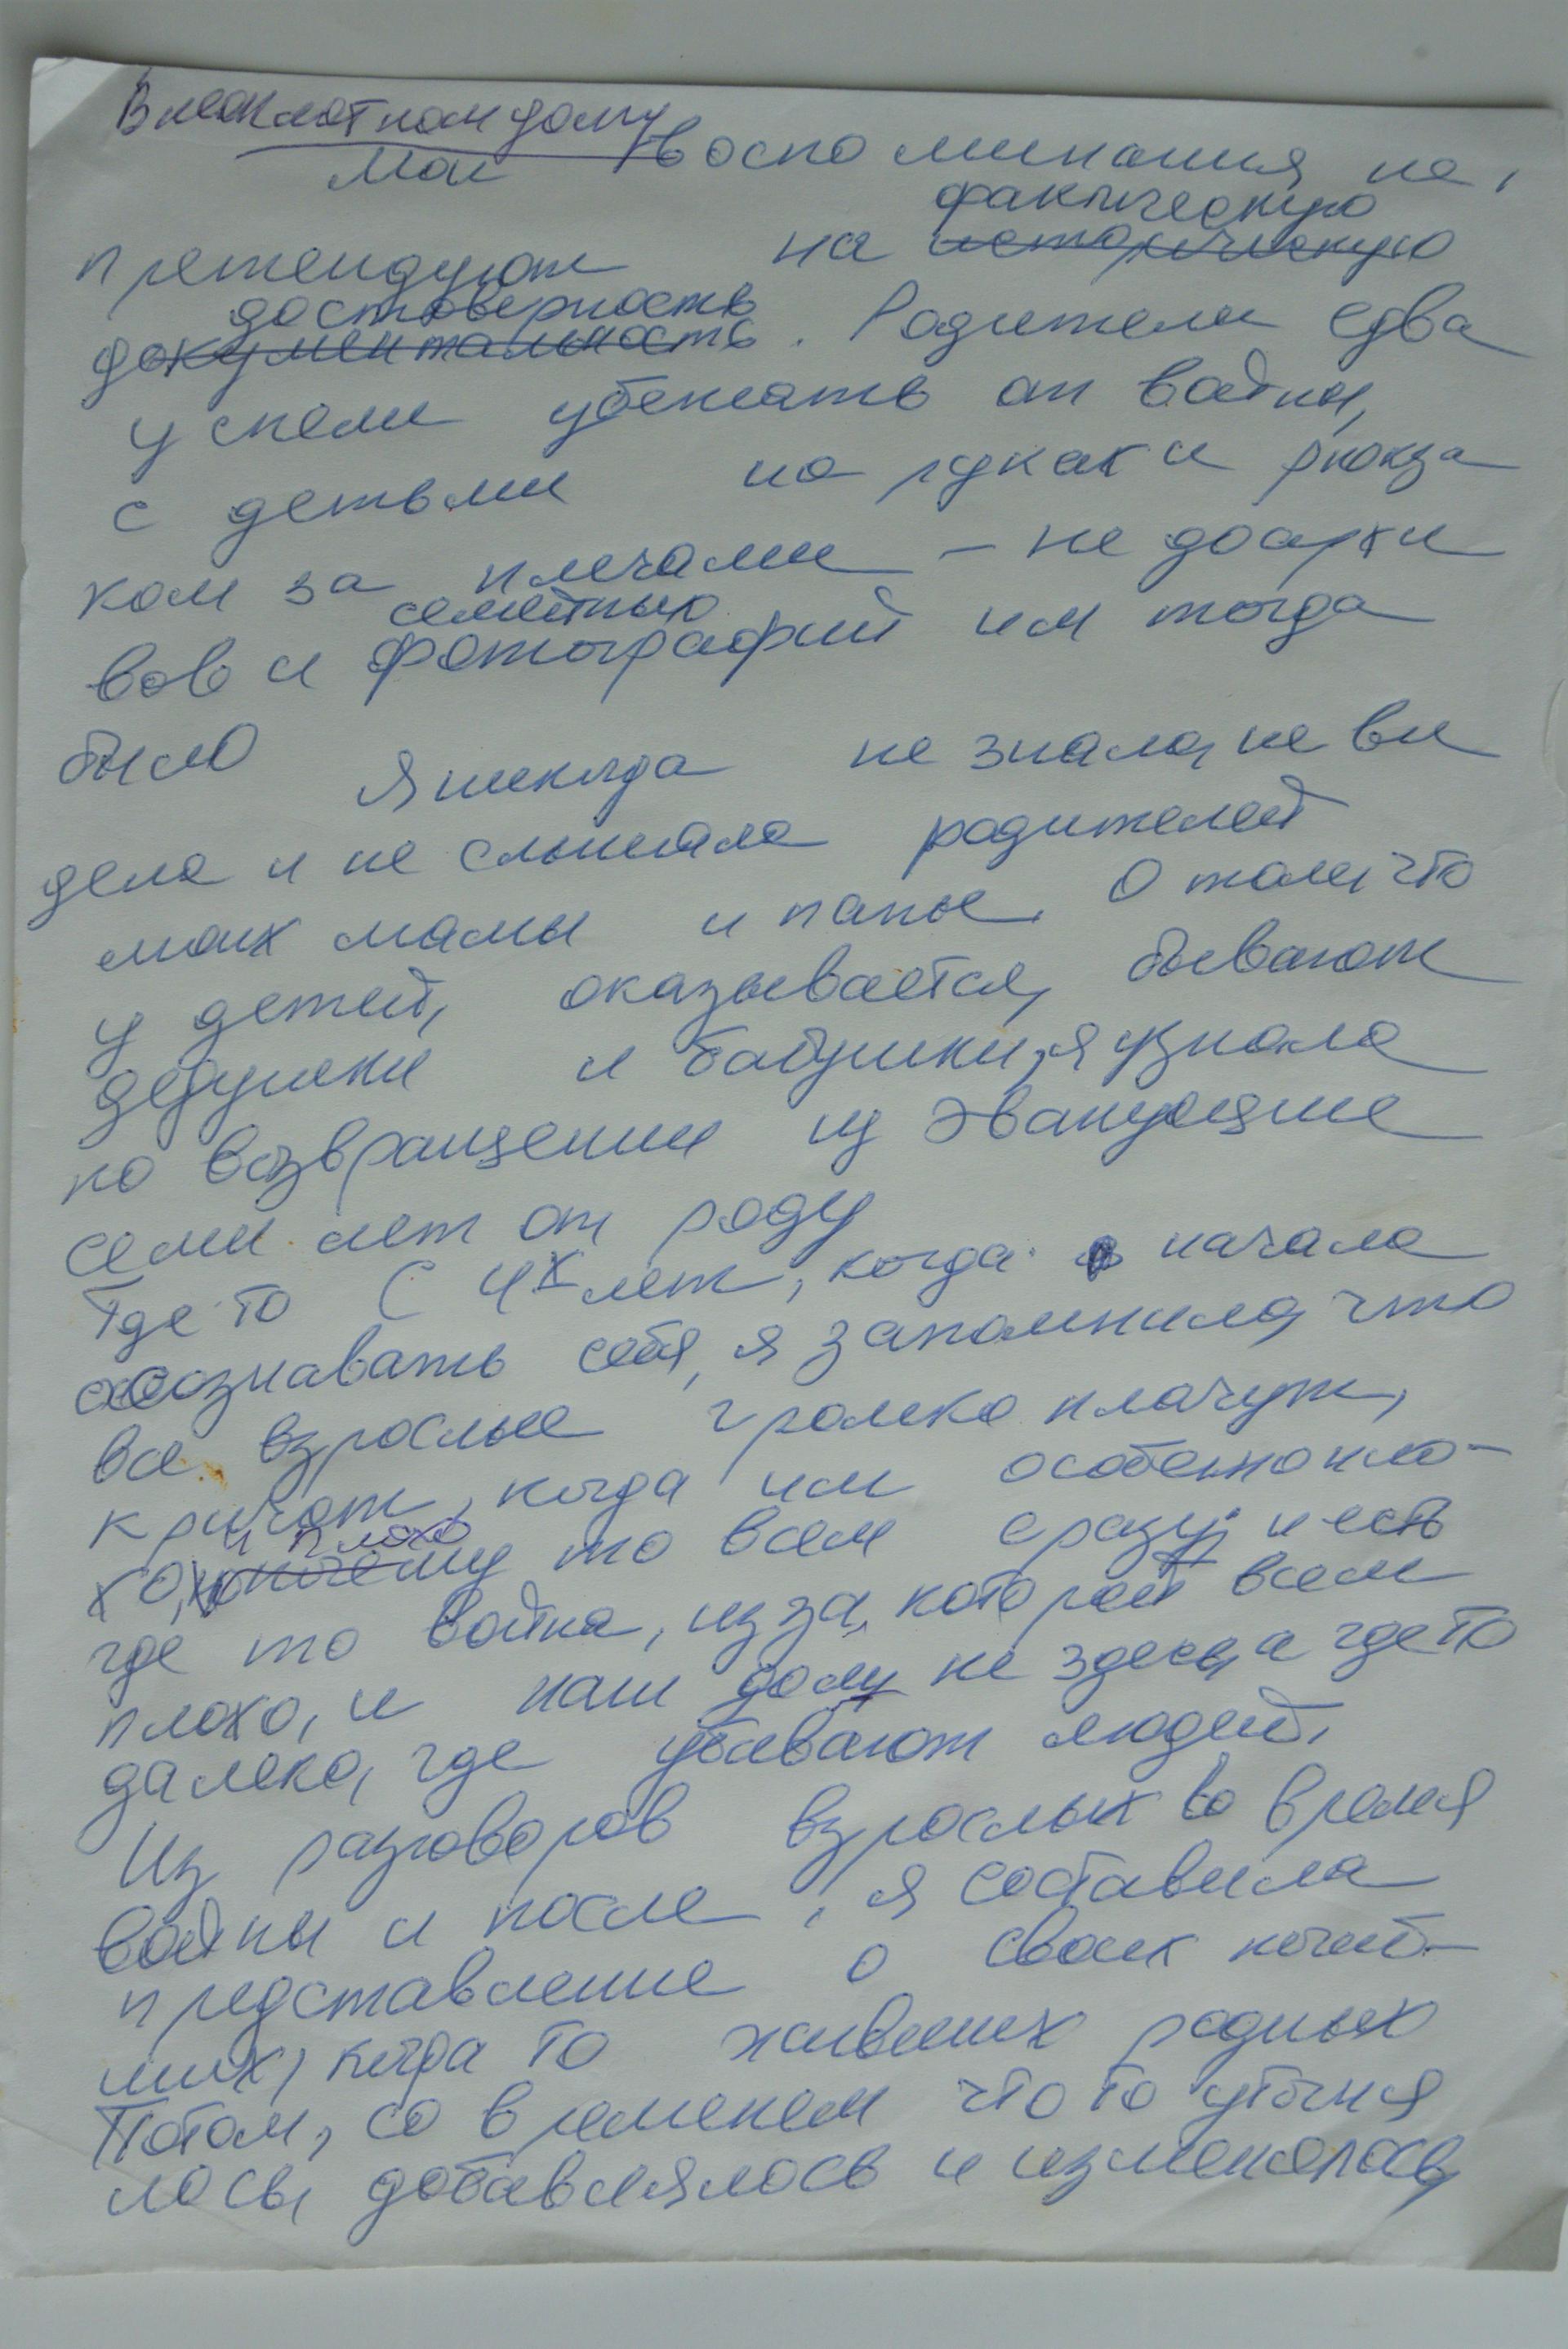 В неоплатном долгу
Мои воспоминания не
фактическую
претендуют на историческую
достоверность
документальность. Родители едва
успели убежать от войны,
с детьми на руках и рюкза
ком за плечами – не до архи
семейных
вов и фотографий им тогда
было
Я никогда не знала, не ви
дела и не слышала родителей
моих мамы и папы. О том, что
у детей, оказывается, бывают
дедушки и бабушки, я узнала
по возвращении из эвакуации
семи лет от роду
Где то с 4х лет, когда начала
осознавать себя, я запомнила, что
все взрослые громко плачут,
кричат, когда им особенно пло-
и плохо
хо, почему то всем сразу, и есть
где то война, из за которой всем
плохо, и наш дом не здесь, а где то
далеко, где убивают людей.
Из разговоров взрослых во время
войны и после, я составила
представление о своих погиб-
ших, когда то живших родных
Потом, со временем что то уточня
лось, добавлялось и изменялось,